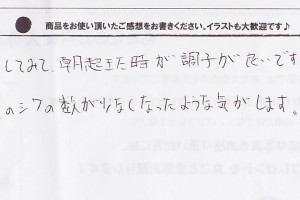 ● 商品をお使い頂いたご感想をお書きください。イラストも大歓迎です♪
してみて、朝起きた時が調子が良いです
のシワの数が少なくなったような気がします。